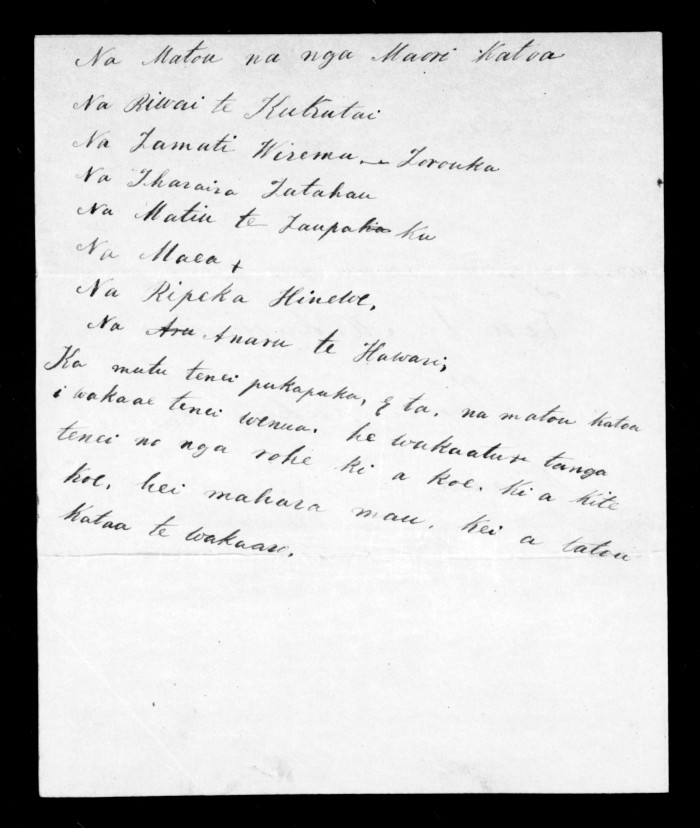 Na Matou na nga Maori Katoa
Na Riwai te Kutkutai
Na Tamati Wiremu, Torouka
Na Iharaira Tatahau
Na Matiu te Taupaku
Na Maea +
Na Ripeka Hinewe,
Na Anaru te Hawari,
Ka mutu tenei pukapuka, E ta, na matou katoa
i wakaae tenei wenua. he wakaatu tanga
tenei no nga rohe ki a koe. Ki a kite
koe, hei mahara mau. Kei a tatou
Kataa te wakaaro.